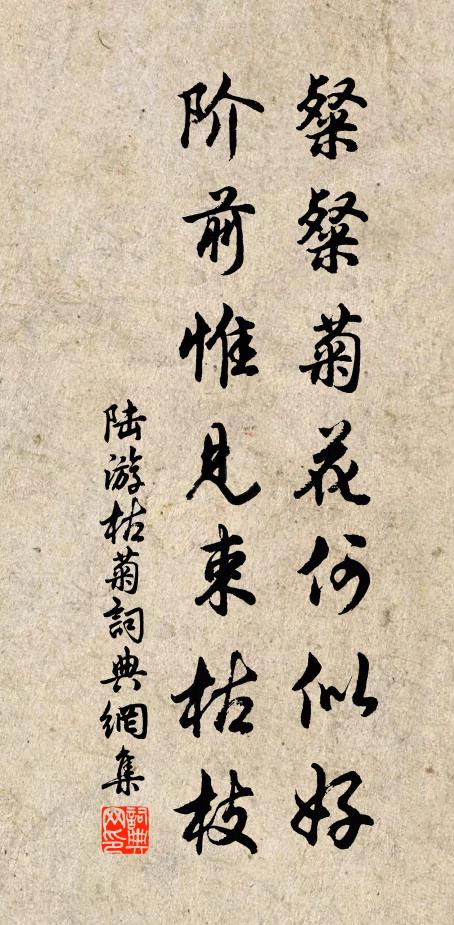 粲粲菊花何似好
阶前惟见束枯枝
陆游枯菊詞典網集
詞典网印